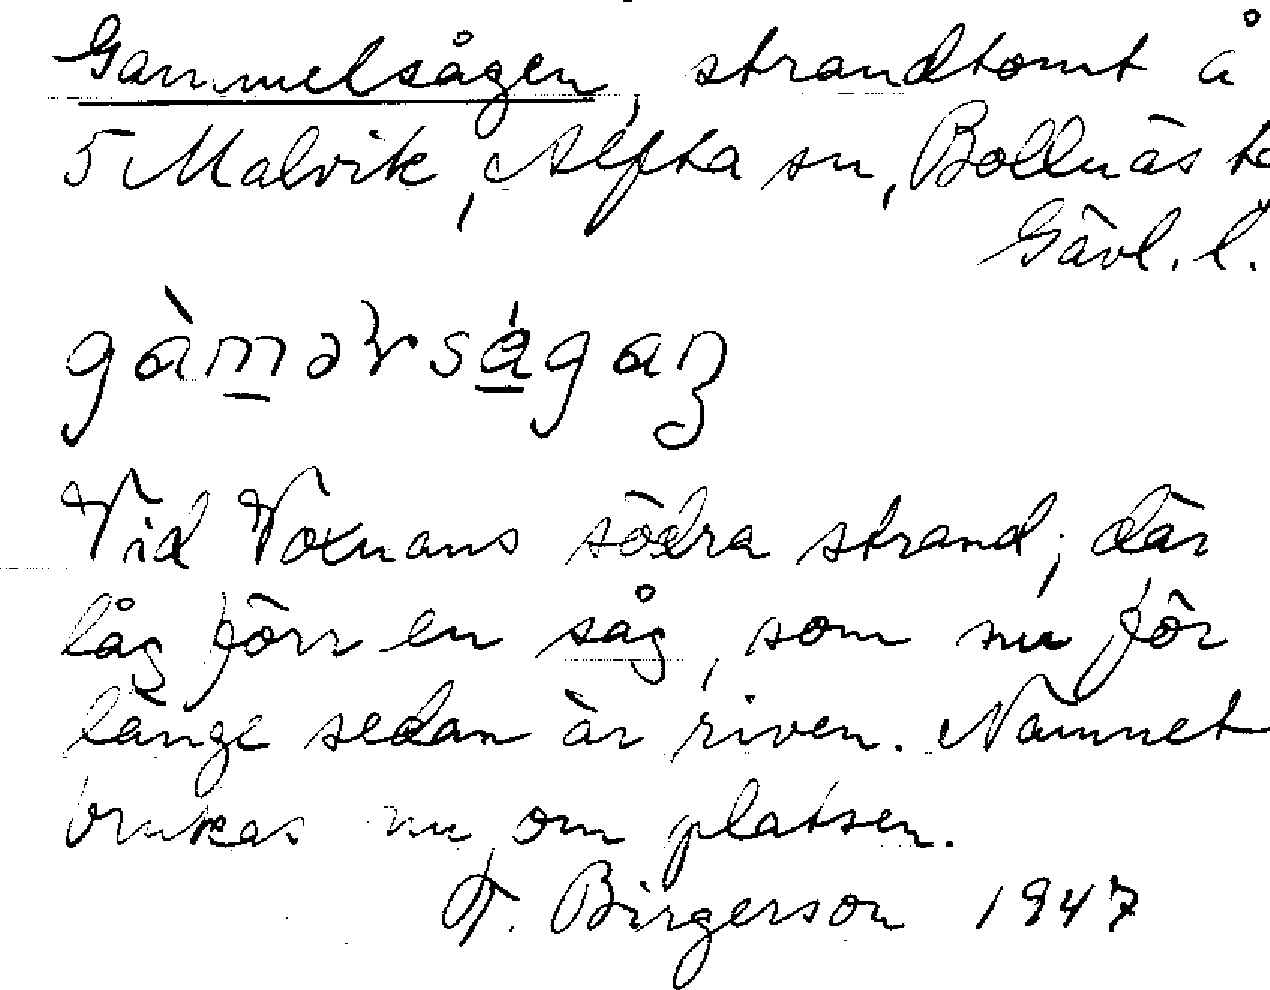 Gammelsågen, strandtomt å
5 Malvik, Alfta sn, Bollnäs
Gävl. l.
Vid Voxnans södra strand; där
låg förr en såg, som nu för
länge sedan är riven. Namnet
brukas nu om platsen.
F. Birgerson 1947